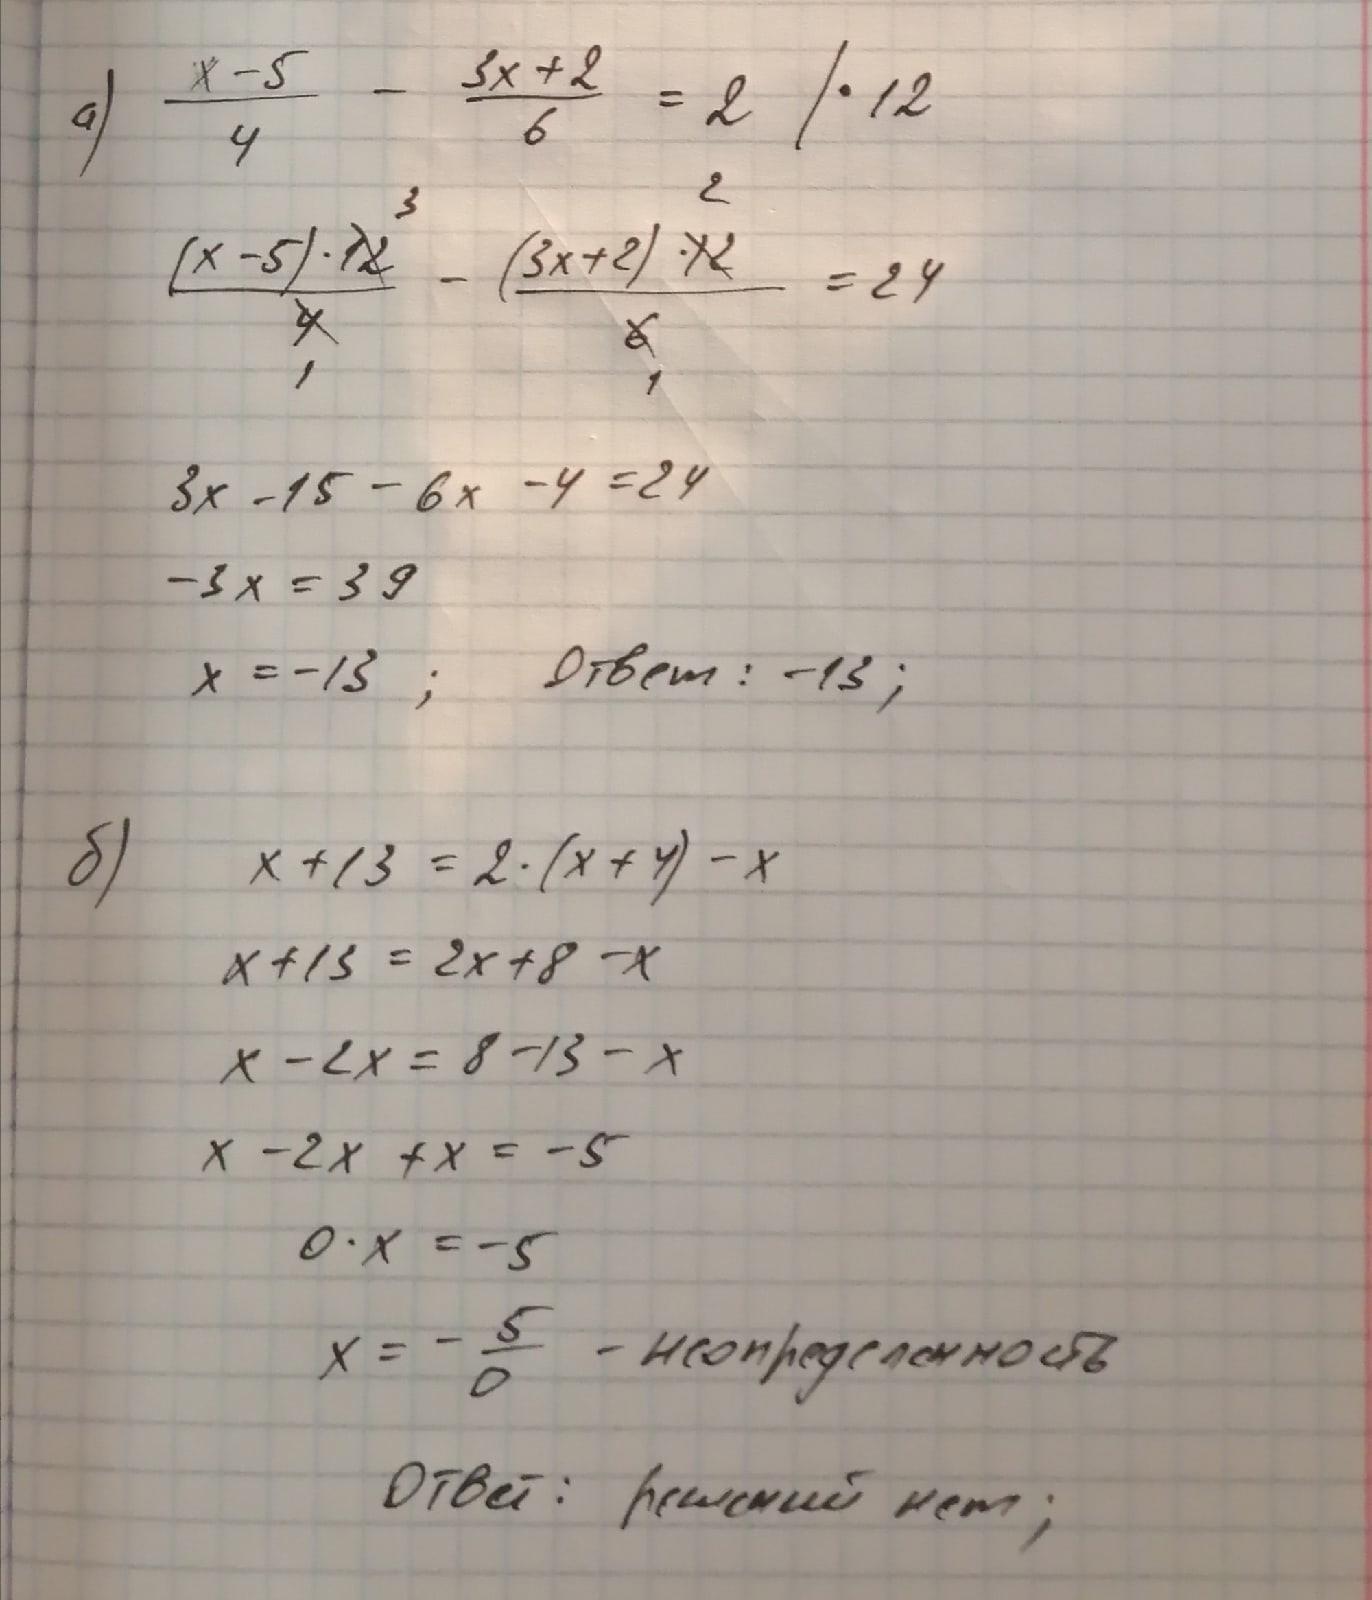 а) (x-5)/4 - (3x+2)/6 = 2 /·12
((x-5)·12)/4 - ((3x+2)·12)/6 = 24
3 2
1 1
3x -15 - 6x -4 = 24
-3x = 39
x = -13 ; Ответ: -13;
б) x+13 = 2·(x+4) - x
x+13 = 2x+8 -x
x - 2x = 8 -13 - x
x -2x +x = -5
0·x = -5
x = - 5/0 - неопределенность
Ответ: решений нет;